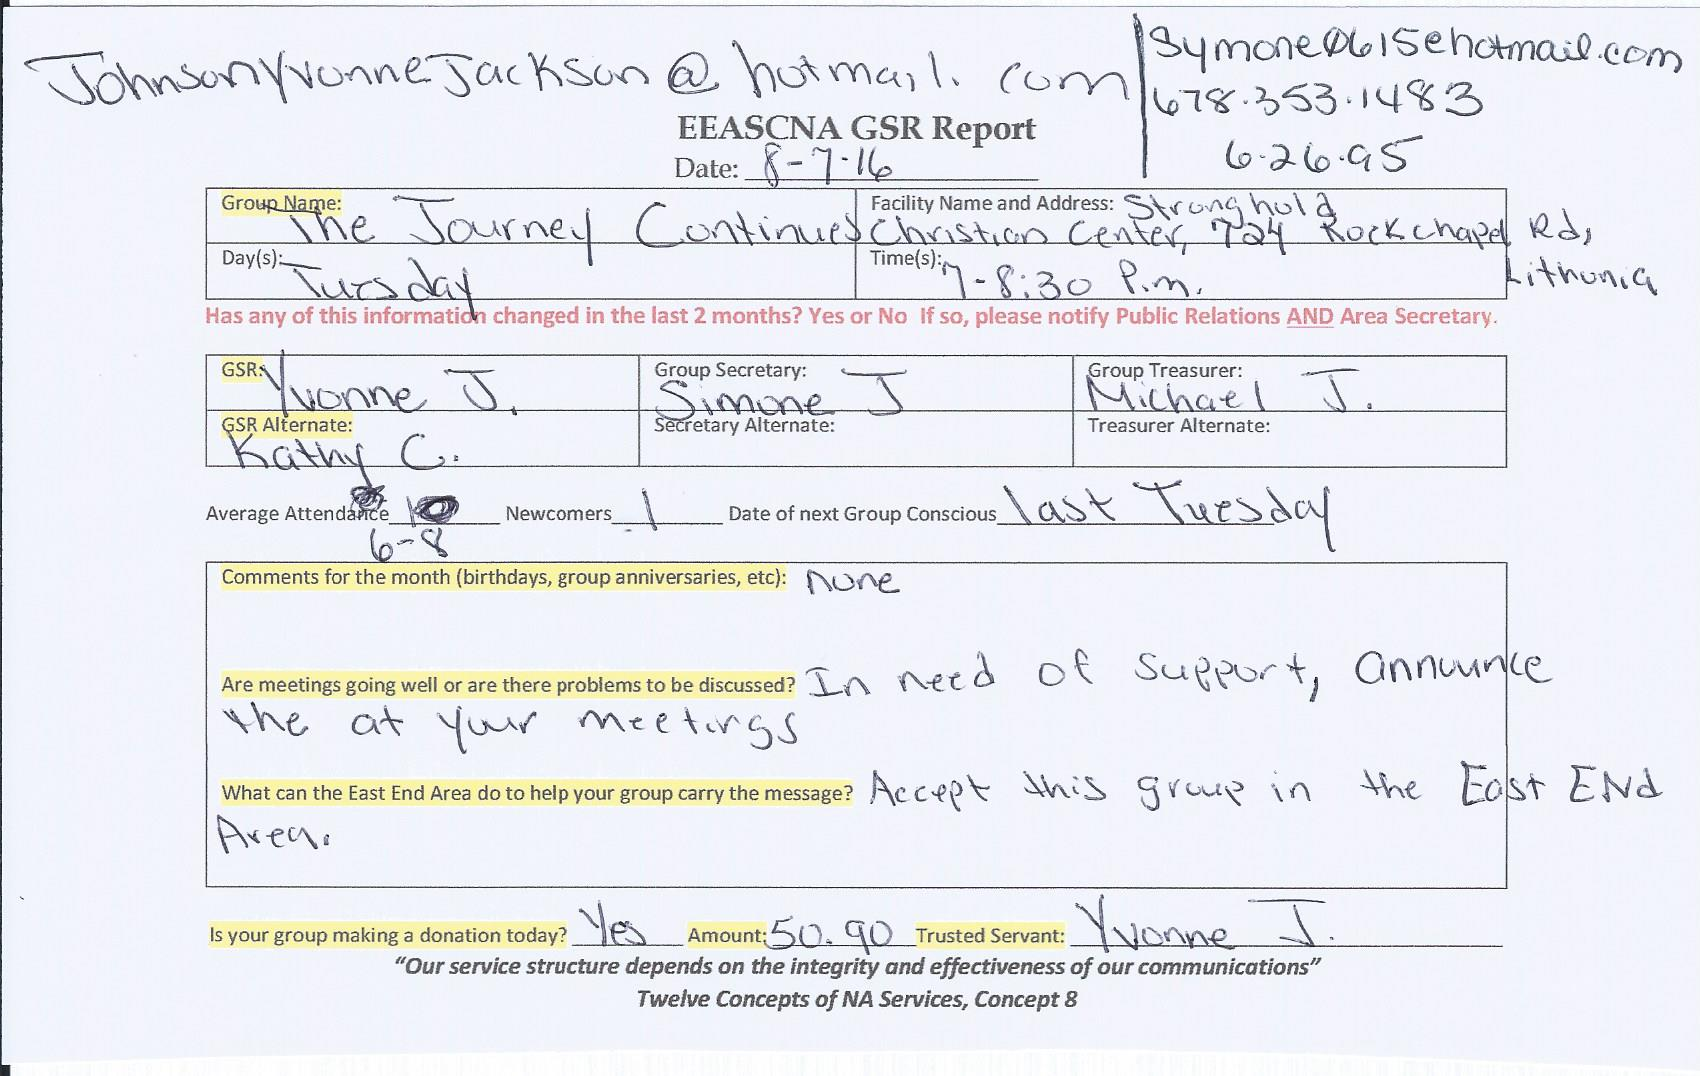 JohnsonYvonneJackson@hotmail.com
Symone0615@hotmail.com
678.353.1483
6.26.95
EEASCNA GSR Report
Date: 8-7-16
Group Name: The Journey Continues
Facility Name and Address: Stronghold
Christian Center, 724 Rockchapel Rd,
Lithonia
Day(s): Tuesday
Time(s): 7-8:30 P.m.
Has any of this information changed in the last 2 months? Yes or No If so, please notify Public Relations AND Area Secretary.
GSR: Yvonne J. Group Secretary: Simone J Group Treasurer: Michael J.
GSR Alternate: Kathy C. Secretary Alternate: Treasurer Alternate:
Average Attendance Newcomers 1 Date of next Group Conscious last Tuesday
6-8
Comments for the month (birthdays, group anniversaries, etc): none
Are meetings going well or are there problems to be discussed? In need of support, announce
the at your meetings
What can the East End Area do to help your group carry the message? Accept this group in the East ENd
Area.
Is your group making a donation today? Yes Amount: 50.90 Trusted Servant: Yvonne J.
“Our service structure depends on the integrity and effectiveness of our communications”
Twelve Concepts of NA Services, Concept 8